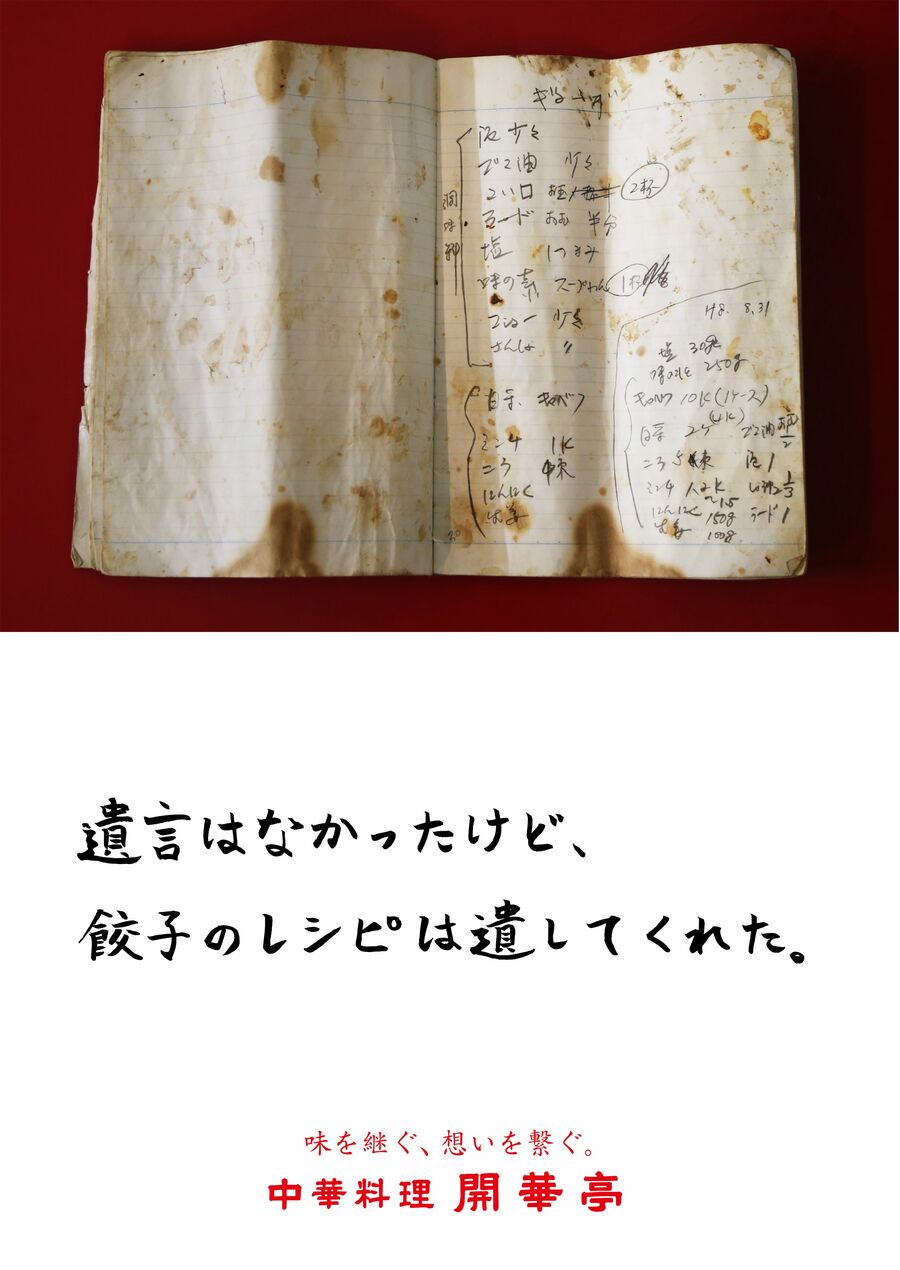 ぎょーざ
調味料
酒 少々
ゴマ油 少々
こい口 2杯
ラード おたま 半分
塩 1つまみ
味の素 スープわん 1杯
コショー 少々
さんしょ 〃
白菜 キャベツ
ミンチ 1K
ニラ 1束
にんにく
生姜
H8. 8.31
塩 30g
味の素 250g
キャベツ 10K(1ケース)
白菜 2ケ(4K) ゴマ油
ニラ 5束 酒 1
ミンチ
にんにく 150g ラード 1
生姜 100g
遺言はなかったけど、
餃子のレシピは遺してくれた。
味を継ぐ、想いを繋ぐ。
中華料理 開華亭